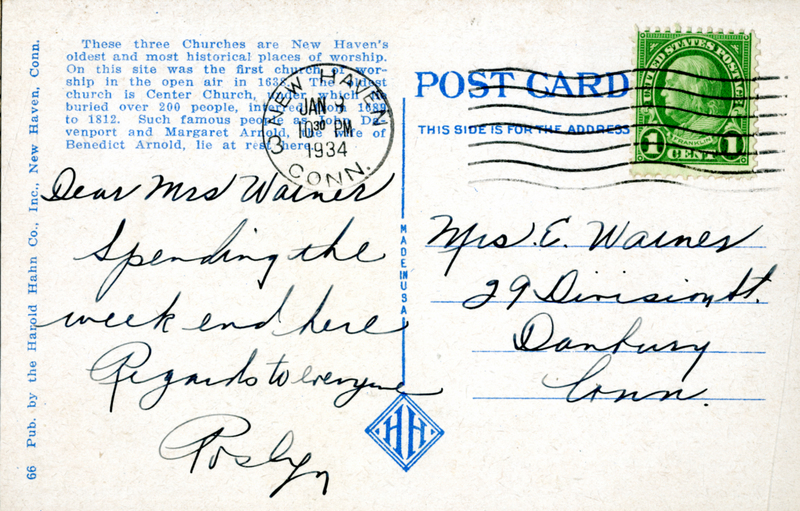 These three Churches are New Haven's
oldest and most historical places of worship.
On this site was the first church of wor-
ship in the open air in 1638. The oldest
church is Center Church, under which
buried over 200 people, interred from 1688
to 1812. Such famous people as John Da-
venport and Margaret Arnold, the wife of
Benedict Arnold, lie at rest here.
66 Pub. by the Harold Hahn Co., Inc., New Haven, Conn.
NEW HAVEN
JAN 9
10 30 PM
1934
3 CONN.
POST CARD
THIS SIDE IS FOR THE ADDRESS
UNITED STATES POSTAGE
FRANKLIN
1 CENT 1
Dear Mrs Warner
Spending the
week end here
Regards to everyone
Roslyn
MADE IN USA
HH
Mrs. E. Warner
29 Division St.
Danbury
Conn.